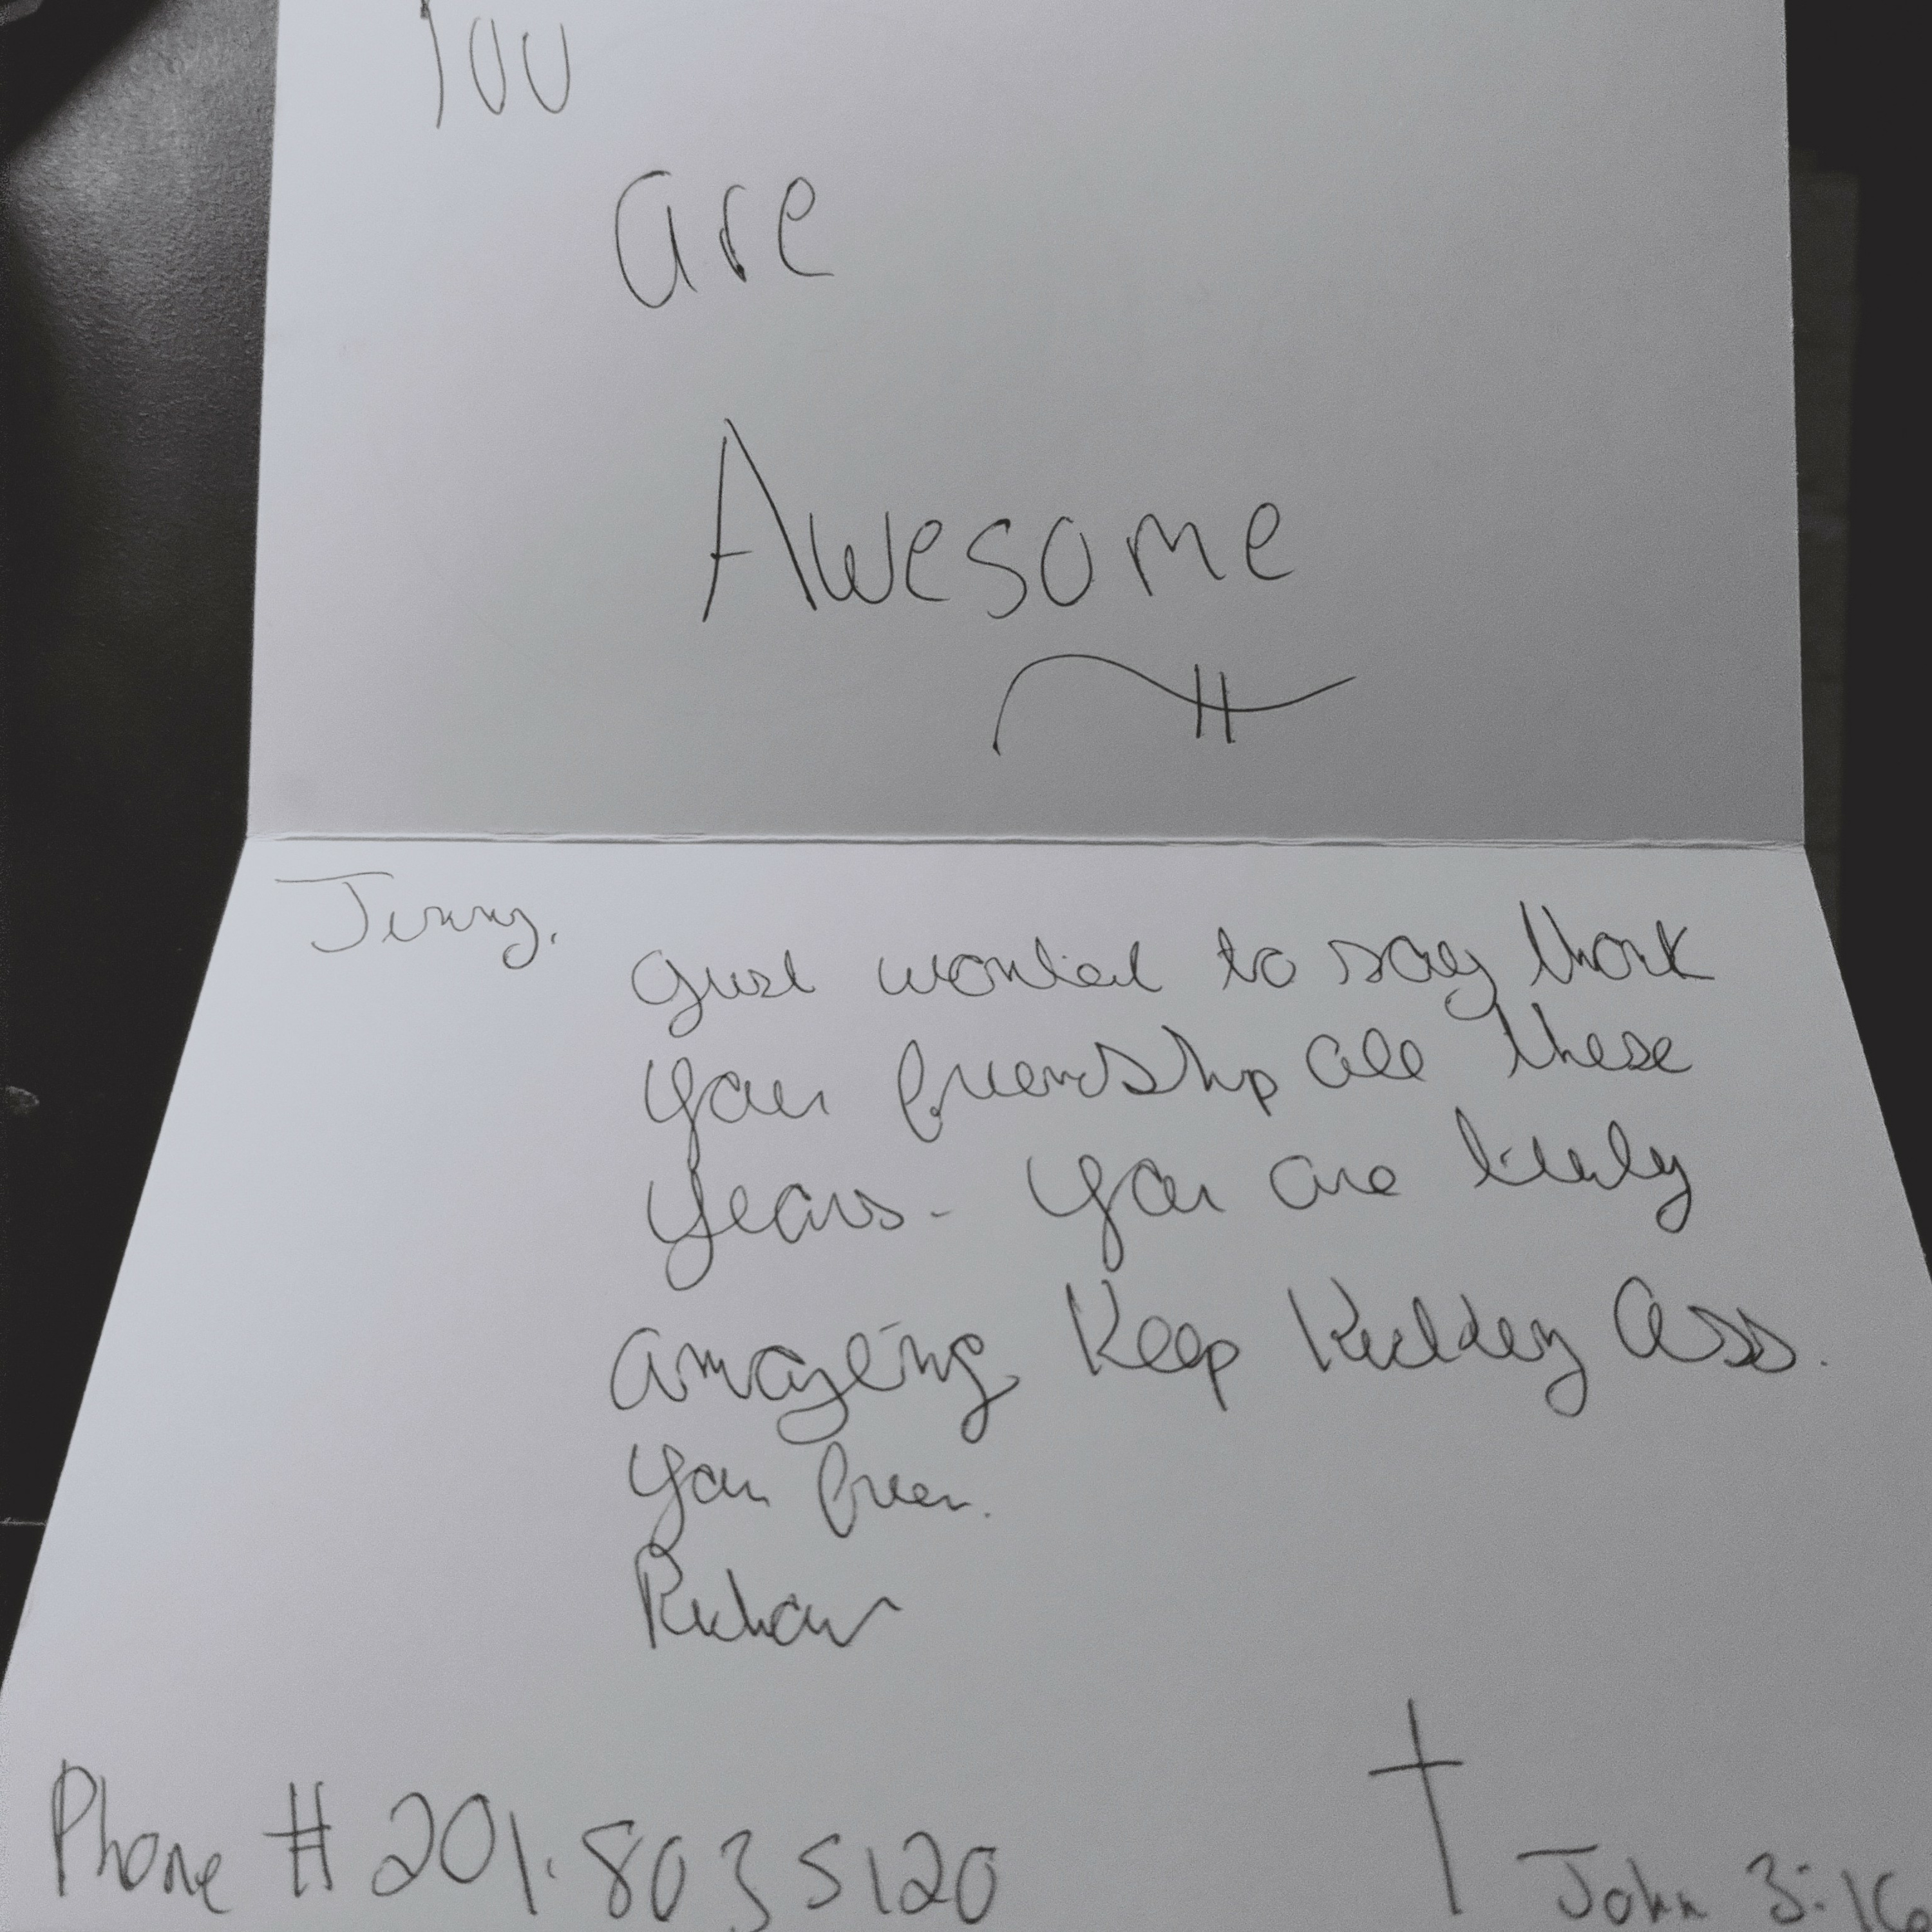 You
are
Awesome
Jerry,
Just wanted to say thank
your friendship all these
years. You are truly
amazing Keep Kicking ass.
Your frien.
Richar
Phone # 201.803 5120
John 3:16